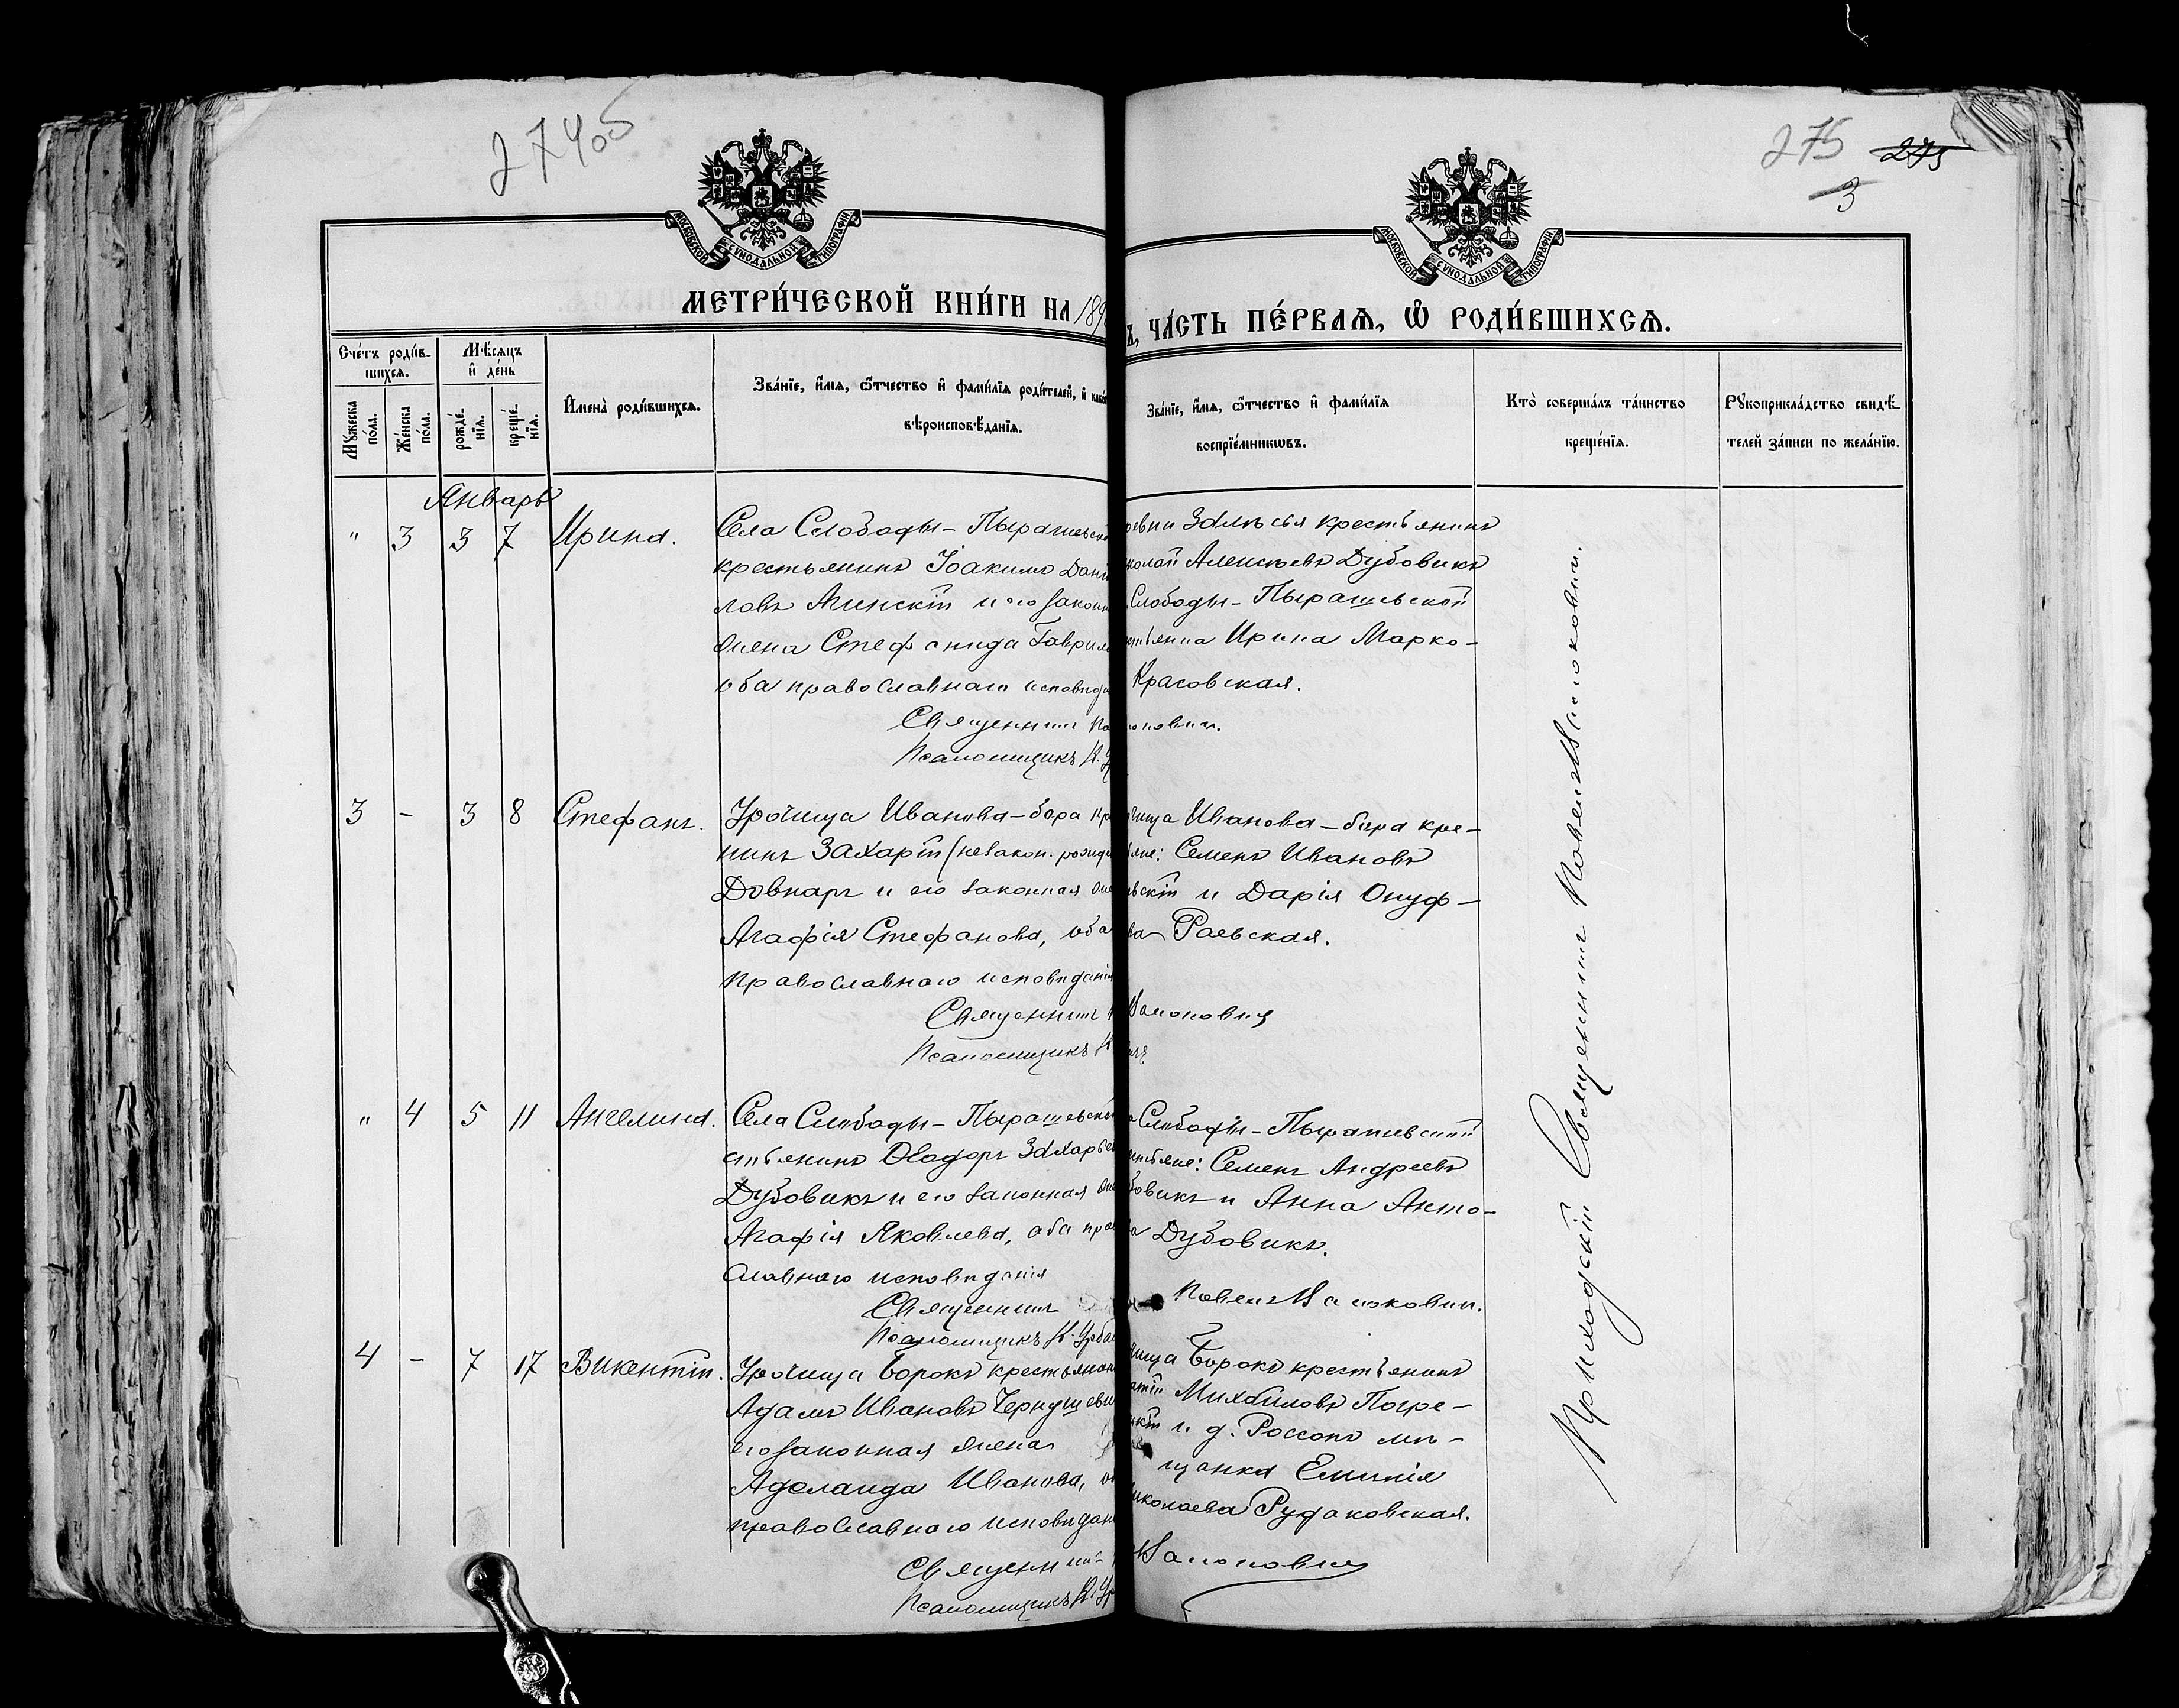 274об
275 275
3
МОСКОВСКОЙ СѴНОДАЛЬНОЙ ТИПОГРАФІИ
МОСКОВСКОЙ СѴНОДАЛЬНОЙ ТИПОГРАФІИ
МЕТРИ́ЧЕСКОЙ КНИ́ГИ НА 189
Ъ, ЧА́СТЬ ПЕ́РВАѦ, Ѽ РОДИ́ВШИХСѦ.
Сче́тъ роди́в-
шихсѧ.
Мꙋ́жеска по́ла.
Же́нска по́ла.
Мѣ́сѧцъ
и҆ де́нь
рожде́-
нїѧ.
креще́-
нїѧ.
И҆мена̀ роди́вшихсѧ.
Зва́нїе, и҆́мѧ, ѻ҆́тчество и҆ фами́лїѧ роди́телей, и҆ како
вѣроисповѣ́данїѧ.
Зва́нїе, и҆́мѧ, ѻ҆́тчество и҆ фами́лїѧ
воспрїе́мникѡвъ.
Кто̀ соверша́лъ та́инство
креще́нїѧ.
Рꙋкоприкла́дство свидѣ́-
телей за́писи по жела́нїю.
Январь
" 3 3 7 Ирина.
Села Слободы-Пырашевско
крестьянинъ Іоакимъ Дані
ловъ Агинскій и его законн
жена Стефанида Гаврило
оба православнаго исповѣда
Священникъ Па
Псаломщикъ К. У
ревни Залѣсья крестьянинъ
колай Алексѣевъ Дубовикъ
Слободы-Пырашевской
стьянка Ирина Марко-
Красовская.
3 - 3 8 Стефанъ.
Урочища Иванова-бора кр
нинъ Захарій (незакон. рожде
Довнаръ и его законная же
Агафія Стефанова, оба
православнаго исповѣданія
Священникъ
Псаломщикъ К
чища Иванова-бора кре-
яне: Семенъ Ивановъ
вскій и Дарія Онуф-
ва Раевская.
" 4 5 11 Ангелина.
Села Слободы-Пырашевско
стьянинъ Ѳеодоръ Захарье
Дубовикъ и его законная же
Агафія Яковлева, оба прав
славнаго исповѣданія
Священникъ
Псаломщикъ К. Урба
Слободы-Пырашевской
стьяне: Семенъ Андреевъ
бовикъ и Анна Анто-
ва Дубовикъ.
4 - 7 17 Викентій.
Урочища Борокъ крестьянин
Адамъ Ивановъ Чернушеви
его законная жена
Аделаида Иванова, о
православнаго исповѣдан
Священникъ
Псаломщикъ К. Ур
ища Борокъ крестьянинъ
атій Михайловъ Погре-
цкій и д. Россохъ мѣ-
щанка Емилія
иколаева Рудаковская.
Приходскій Священникъ